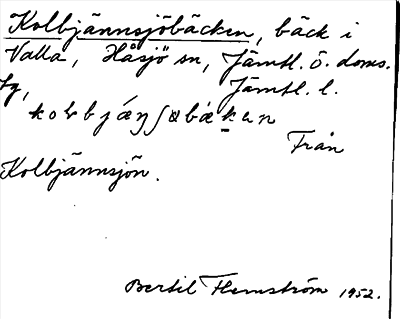 Kolbjännsjöbäcken, bäck i
Valla, Håsjö sn, Jämtl. ö. doms.
Jämtl. l.
Från
Kolbjännsjön.
Bertil Flemström 1952.